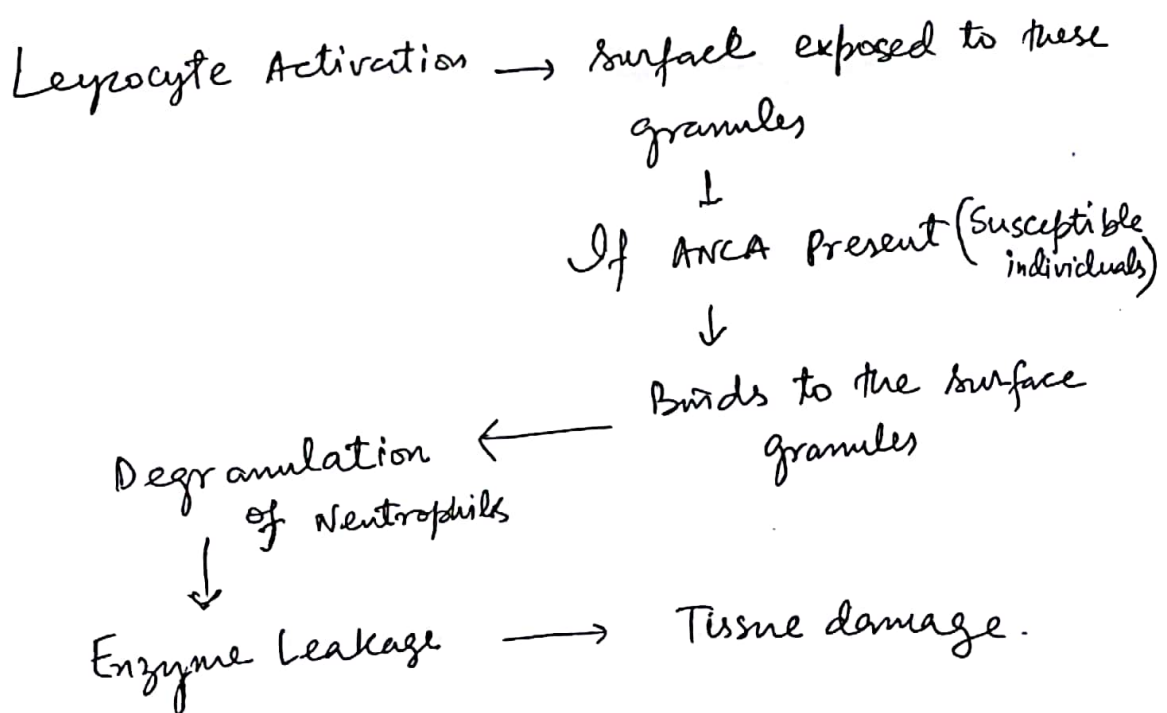 Leyzocyte Activation → surface exposed to these
granules
↓
If ANCA Present (Susceptible
individuals)
↓
Binds to the surface
granules
←
Degranulation
of Neutrophils
↓
Enzyme Leakage → Tissue damage.